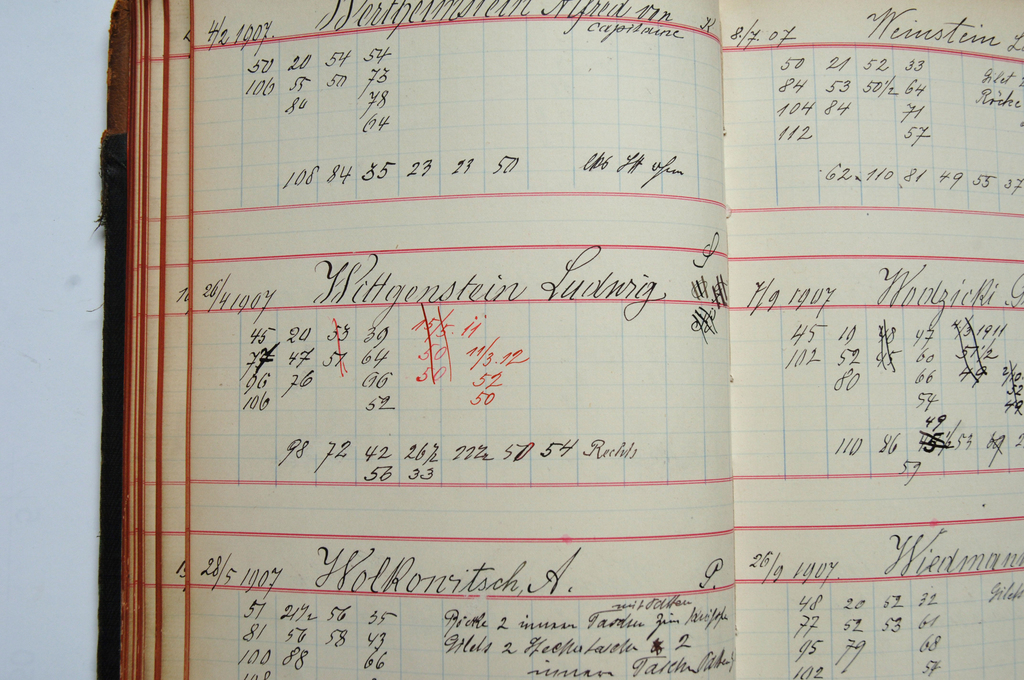 4/2 1907. Wertheimstein Alfred von K
capitaine
50 20 54 54
106 55 50 75
84 78
64
108 84 35 23 23 50
26/4 1907 Wittgenstein Ludwig S
45 20 53 39 15/5. 11
77 47 51 64 50 11/3. 12
96 76 96 50 52
106 52 50
98 72 42 26½ 22½ 50 54 Rechts
56 33
28/5 1907 Wolkowitsch, A. P.
51 21½ 56 35 Röcke 2 innere Taschen zum
81 56 58 43 Gilets 2 2
100 88 66 innere Taschen
108
8/7. 07 Weinstein
50 21 52 33 Gilet
84 53 50½ 64 Röcke
104 84 71
112 57
62. 110 81 49 55 37
7/9 1907 Wodzicki
45 19 48 47 4/3 1911
102 52 45 60 51½
80 66 49
54 52
49 49
110 86 53
59
26/9 1907. Wiedmann
48 20 52 32 Gilets
77 52 53 61
95 79 68
102 57